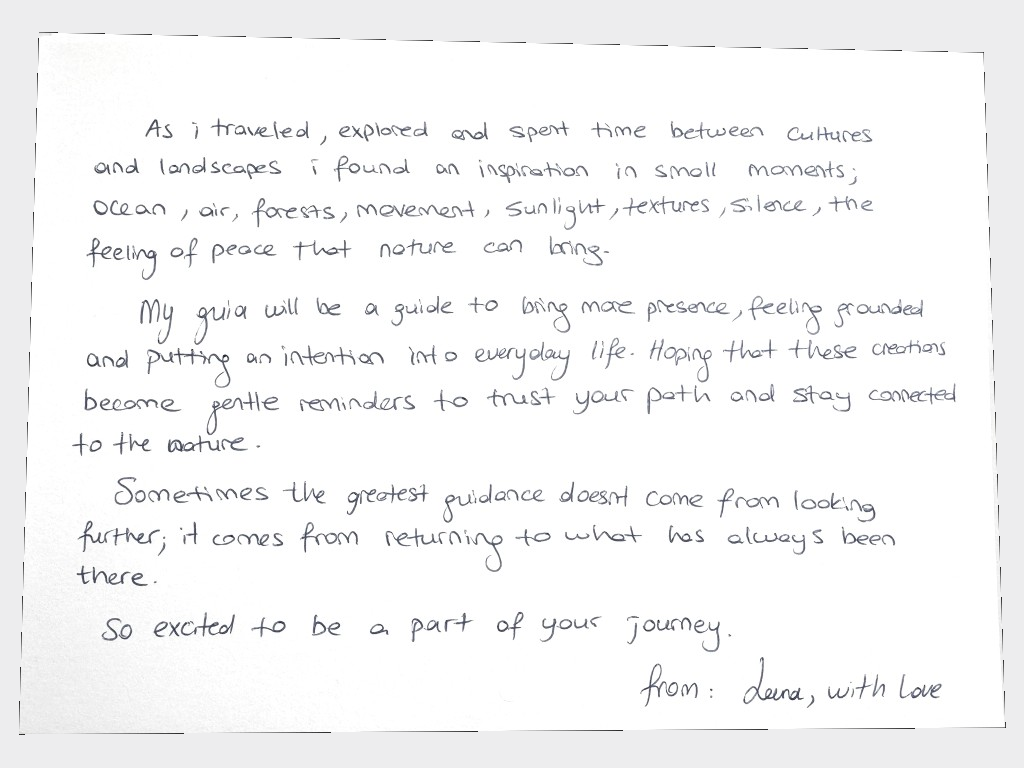 As i traveled, explored and spent time between cultures
and landscapes i found an inspiration in small moments;
ocean, air, forests, movement, sunlight, textures, silence, the
feeling of peace that nature can bring.
My guia will be a guide to bring more presence, feeling grounded
and putting an intention into everyday life. Hoping that these creations
become gentle reminders to trust your path and stay connected
to the nature.
Sometimes the greatest guidance doesnt come from looking
further; it comes from returning to what has always been
there.
So excited to be a part of your journey.
from: , with Love